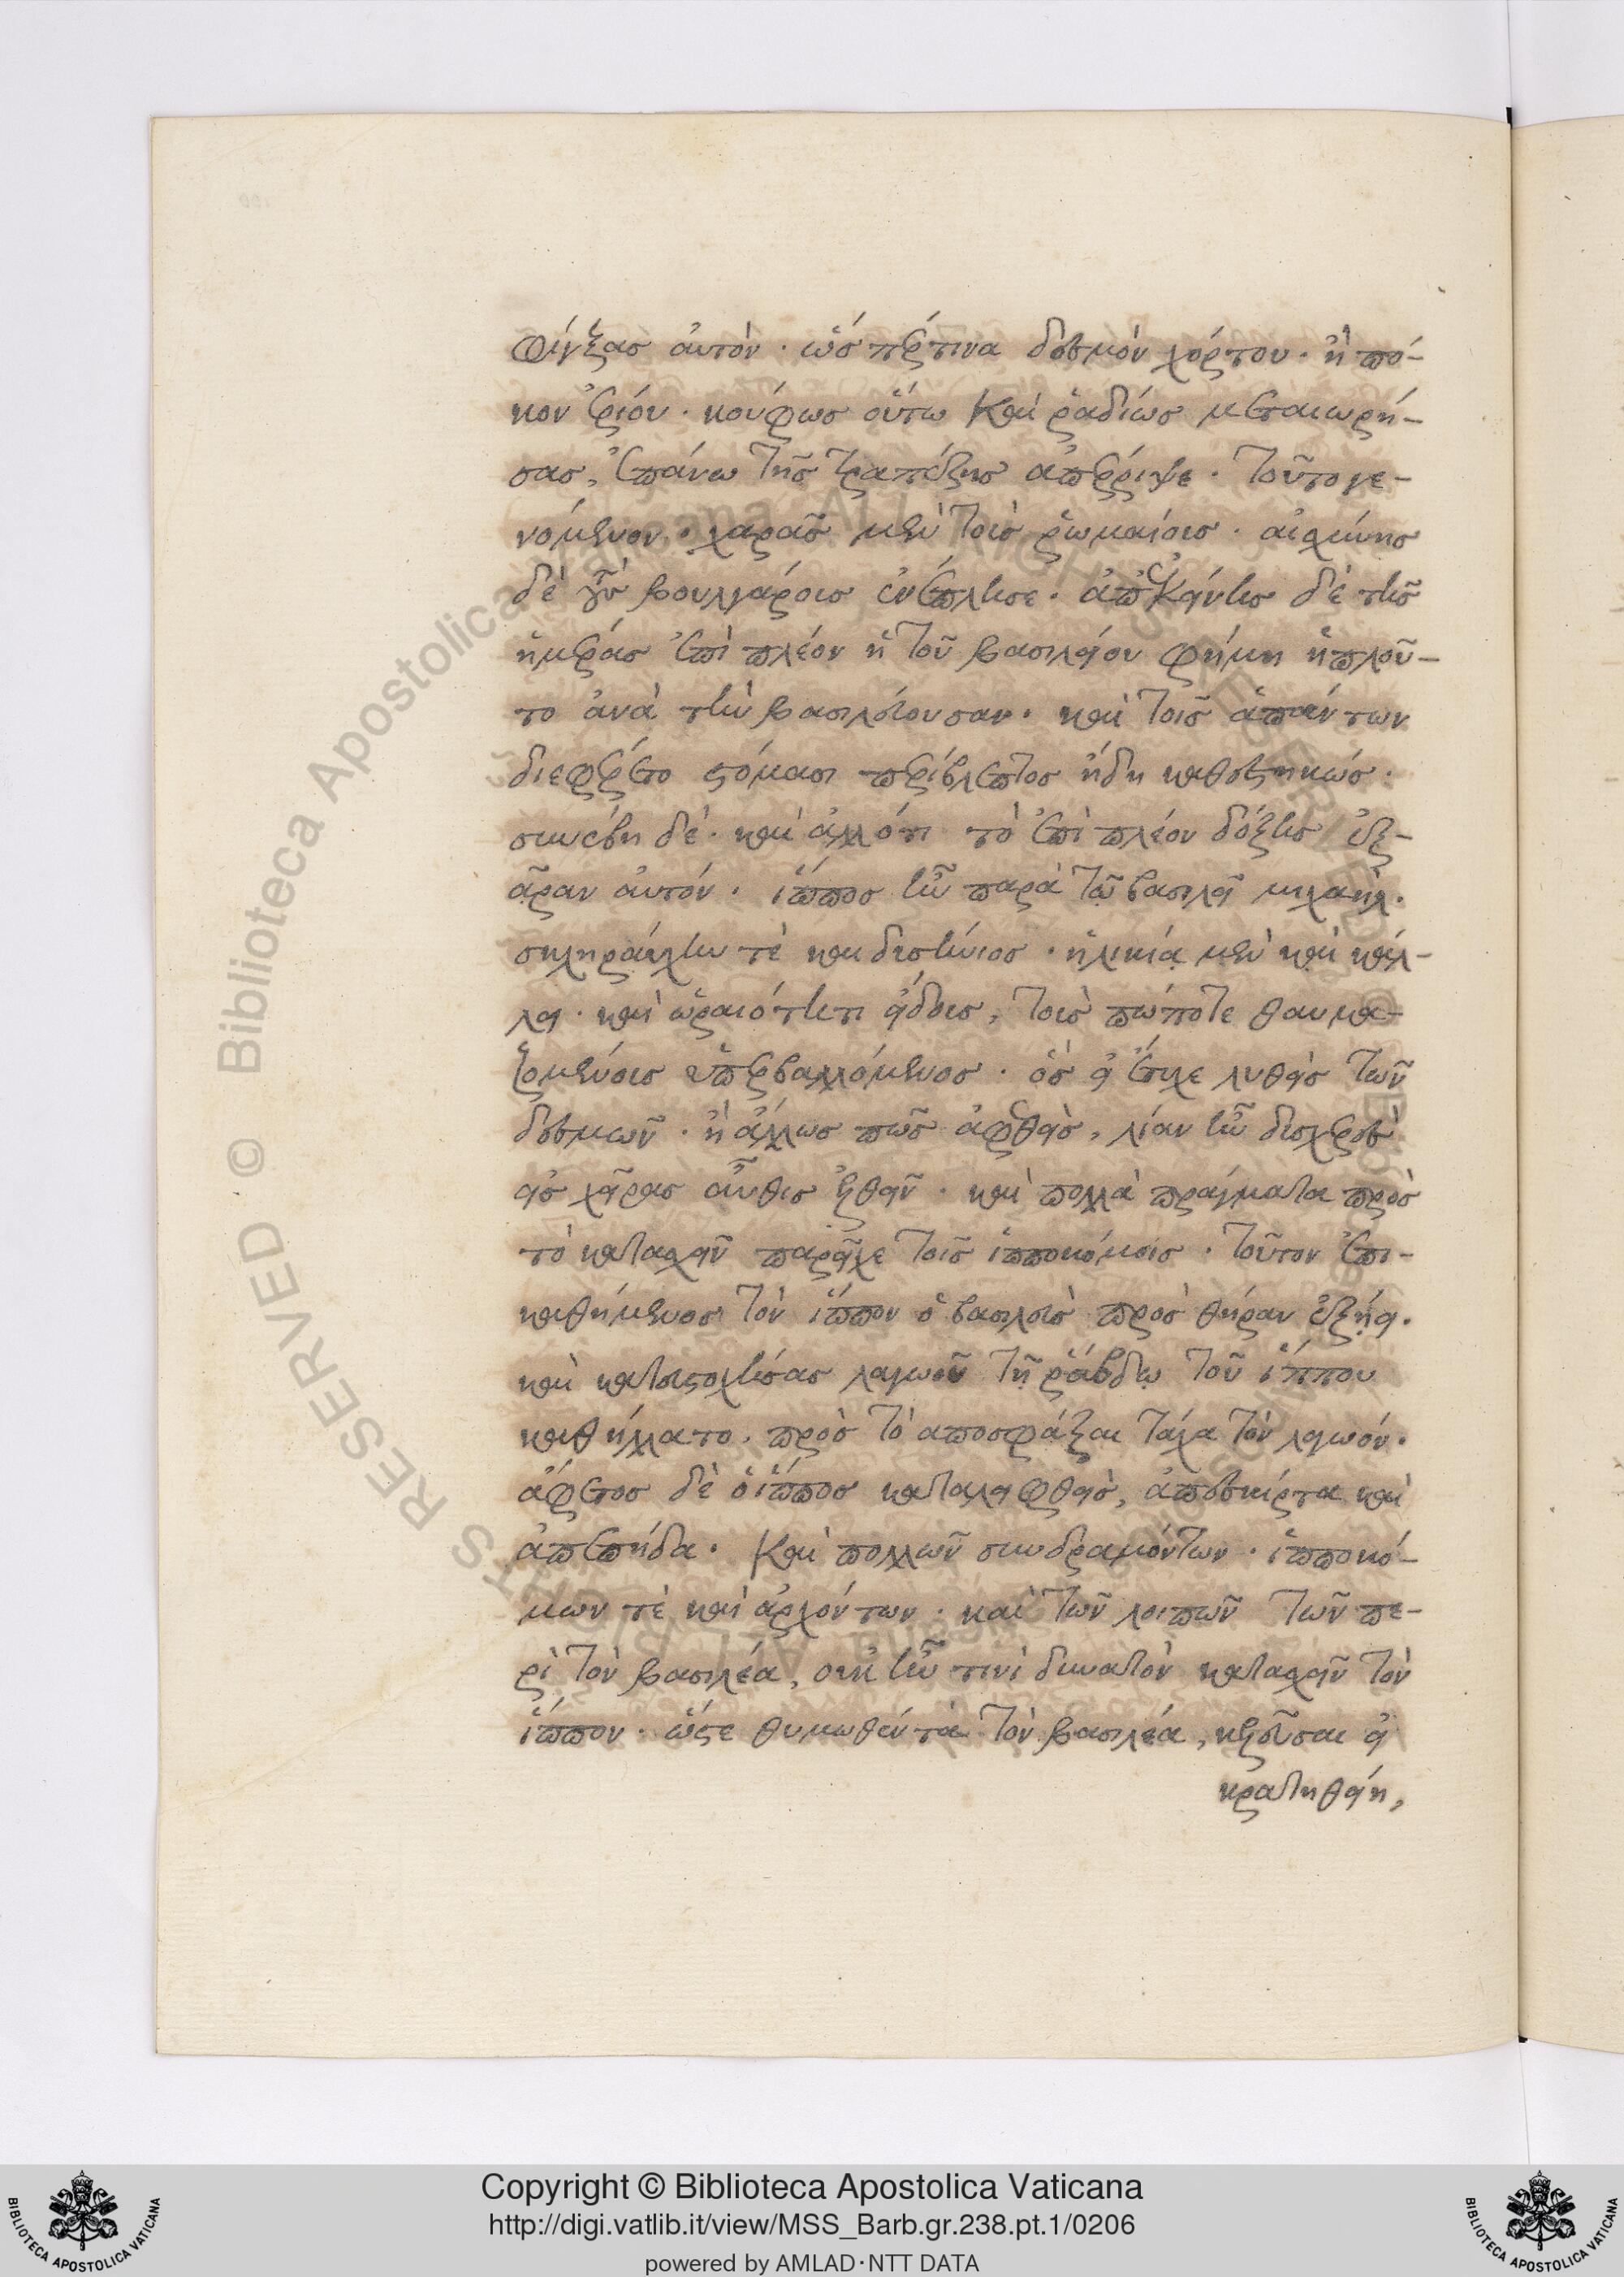 φίγξας αὐτὸν · ὥσπέρτινα δεσμὸν χόρτου · ἢ πό-
κον ἐρίου · κούφως οὕτω καὶ ῥαδίως μεταιωρή-
σας, ἐπάνω τῆς τραπέζης ἀπέρριψε · τοῦτο γε-
νόμενον · χαρᾶς μὲν τοὶς ῥωμαίοις · αἰσχύνης
δὲ τοῖς βουλγάροις ἐνέπλησε · ἀπ᾽ἐκείνης δὲ τῆς
ἡμέρας ἐπὶ πλέον ἡ τοῦ βασιλείου φήμη ἡπλοῦ-
το ἀνὰ τὴν βασιλεύουσαν · καὶ τοῖς ἁπάντων
διεφέρετο στόμασι περίβλεπτος ἤδη καθεστηκώς ·
συνέβη δέ · καὶ ἄλλό τι τὸ ἐπὶ πλέον δόξης ἐξ-
ᾶραν αὐτόν · ἵππος ἦν παρὰ τῷ βασιλεῖ μιχαὴλ ·
σκληραύχην τὲ και δυσήνιος · ἡλικίᾳ μὲν καὶ κάλ-
λει · καὶ ὡραιότητι εἴδους, τοὶς πώποτε θαυμα-
ζομένοις ὑπερβαλλόμενος · ὃς εἰ ἔτυχε λυθεὶς τῶν
δεσμῶν · ἢ ἄλλως πῶς ἀφεθεὶς, λίαν ἦν δυσχερὲς
εἰς χεῖρας αὖθις ἐλθεῖν · καὶ πολλὰ πράγματα πρὸς
τὸ κατασχεῖν παρεῖχε τοῖς ἱπποκόμοις · τοῦτον ἐπι-
καθήμενος τὸν ἵππον ὁ βασιλεὺς πρὸς θήραν ἐξῄει ·
καὶ κατευστοχήσας λαγωὸν τῇ ῥάβδῳ τοῦ ἵππου
καθήλλατο · πρὸς τὸ αποσφάξαι τάχα τὸν λαγωόν ·
ἄφετος δὲ ὁ ἵππος καταλειφθεὶς, ἀπεσκίρτα καὶ
ἀπεπήδα · καὶ πολλῶν συνδραμόντων · ἱπποκό-
μων τὲ καὶ ἀρχόντων · καὶ τῶν λοιπῶν τῶν πε-
ρὶ τὸν βασιλέα, οὐκ ἦν τινὶ δυνατὸν κατασχεῖν τὸν
ἵππον · ὥστε θυμωθέντα τὸν βασιλέα, κελεῦσαι εἰ
κρατηθείη,
Copyright © Biblioteca Apostolica Vaticana
http://digi.vatlib.it/view/MSS_Barb.gr.238.pt.1/0206
powered by AMLAD·NTT DATA